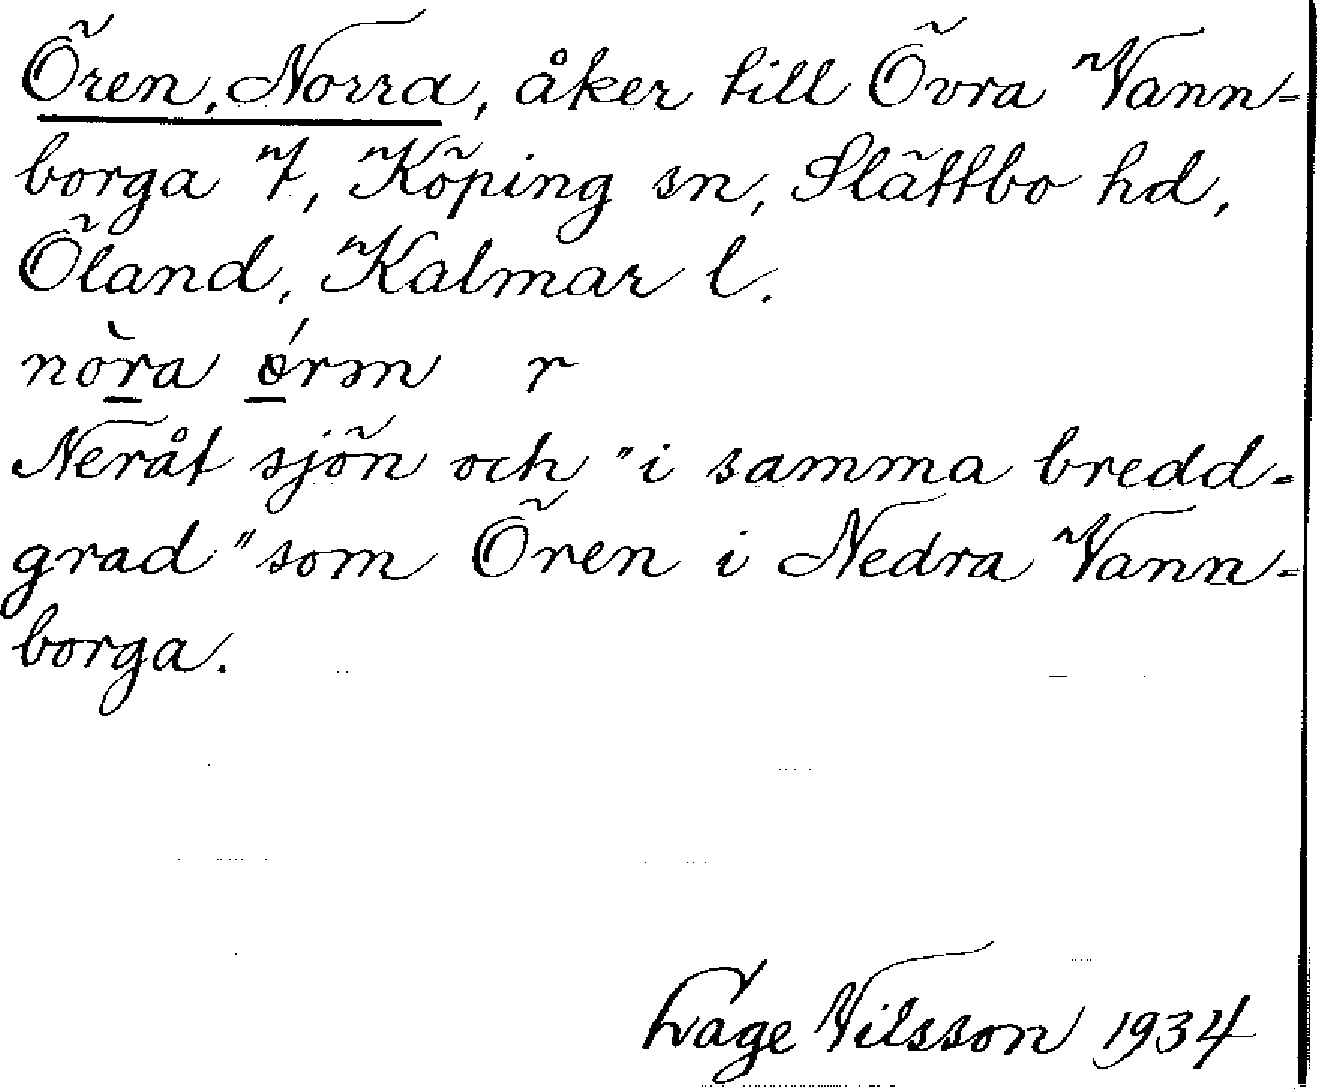 Ören, Norra, åker till Övra Vann-
borga 7, Köping sn, Slättbo hd,
Öland, Kalmar l.
nòra ǿrm r
Neråt sjön och "i samma bredd-
grad" som Ören i Nedra Vann-
borga.
Nilsson 1934